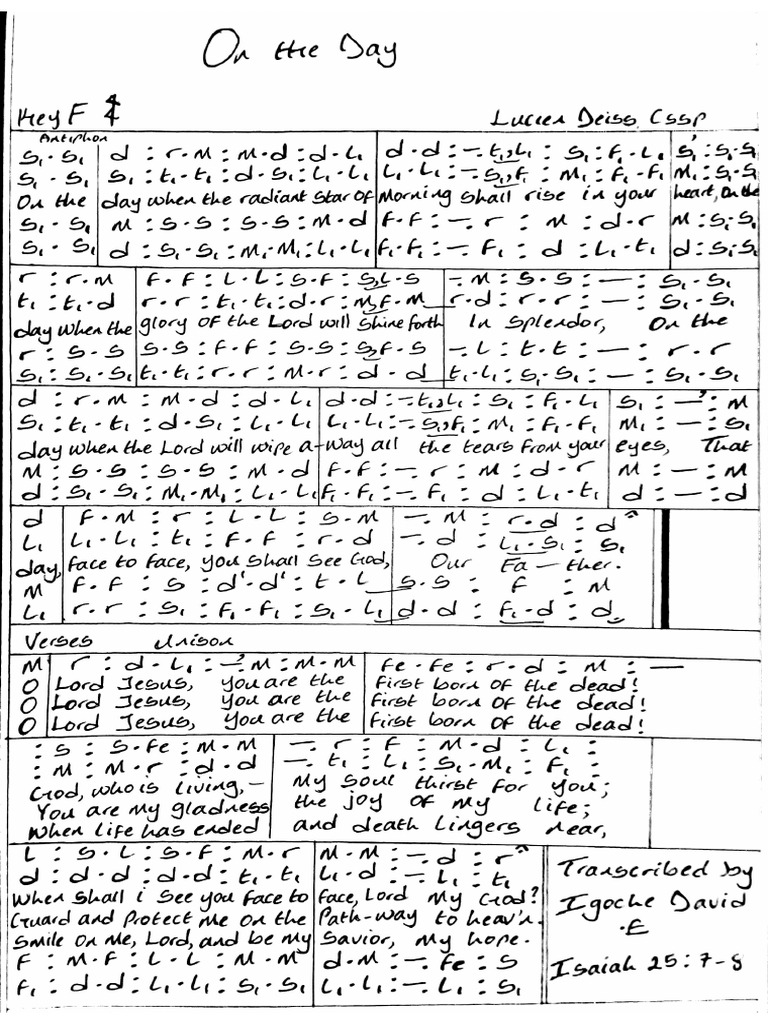 On the Day
Key F 4/4 Lucien Deiss, CSSP
Antiphon
S₁ . S₁ | d : r . m : m . d : d . L₁ | d . d : — . t₁,L₁ : S₁ : F₁ . L₁ | S₁' : S₁ . S₁
S₁ . S₁ | S₁ : t₁ . t₁ : d . S₁ : L₁ . L₁ | L₁ . L₁ : — . S₁,F₁ : M₁ : F₁ . F₁ | M₁ : S₁ . S₁
On the day when the radiant star of Morning shall rise in your heart, On the
S₁ . S₁ | M : S . S : S . S : M . d | F . F : — . r : M : d . r | M : S₁ . S₁
S₁ . S₁ | d : S₁ . S₁ : M₁ . M₁ : L₁ . L₁ | F₁ . F₁ : — . F₁ : d : L₁ . t₁ | d : S₁ . S₁
r : r . M | F . F : L . L : S . F : S,L . S | — . M : S . S : — : S₁ . S₁
t₁ : t₁ . d | r . r : t₁ . t₁ : d . r : M,F . M | r . d : r . r : — : S₁ . S₁
day when the glory of the Lord will shine forth In splendor, On the
r : S . S | S . S : F . F : S . S : S,F . S | — . L : t . t : — : r . r
S₁ : S₁ . S₁ | t₁ . t₁ : r . r : M . r : d . d | t₁ . L₁ : S₁ . S₁ : — : S₁ . S₁
d : r . M : M . d : d . L₁ | d . d : — . t₁,L₁ : S₁ : F₁ . L₁ | S₁ : —' : M
S₁ : t₁ . t₁ : d . S₁ : L₁ . L₁ | L₁ . L₁ : — . S₁,F₁ : M₁ : F₁ . F₁ | M₁ : — : S₁
day when the Lord will wipe a-way all the tears from your eyes, That
M : S . S : S . S : M . d | F . F : — . r : M : d . r | M : — : M
d : S₁ . S₁ : M₁ . M₁ : L₁ . L₁ | F₁ . F₁ : — . F₁ : d : L₁ . t₁ | d : — : d
d | F . M : r : L . L : S . M | — . M : r . d : d
L₁ | L₁ . L₁ : t₁ : F . F : r . d | — . d : L₁ . S₁ : S₁
day, face to face, you shall see God, Our Fa — ther.
M | F . F : S : d' . d' : t . L | S . S : F : M
L₁ | r . r : S₁ : F₁ . F₁ : S₁ . L₁ | d . d : F₁ . d : d
Verses Unison
M | r : d . L₁ : —' . M : M . M | Fe . Fe : r . d : M : —
O Lord Jesus, you are the first born of the dead!
O Lord Jesus, you are the first born of the dead!
O Lord Jesus, you are the first born of the dead!
: S : S . Fe : M . M | — . r : F : M . d : L₁ :
: M : M . r : d . d | — . t₁ : L₁ : S₁ . M₁ : F₁ .
God, who is living, — My soul thirst for you;
You are my gladness the joy of my life;
When life has ended and death lingers near,
L : S . L : S . F : M . r | M . M : — . d : r
d : d . d : d . d : t₁ . t₁ | L₁ . d : — . L₁ : t₁
When shall i see you face to face, Lord My God?
Guard and Protect me on the Path-way to heav'n.
Smile on me, Lord, and be my Savior, my hope.
F : M . F : L . L : M . M | d . M : — . Fe : S
F₁ : d . d : L₁ . L₁ : S₁ . S₁ | L₁ . L₁ : — . L₁ : S₁
Transcribed by
Igoche David
.E
Isaiah 25:7-8